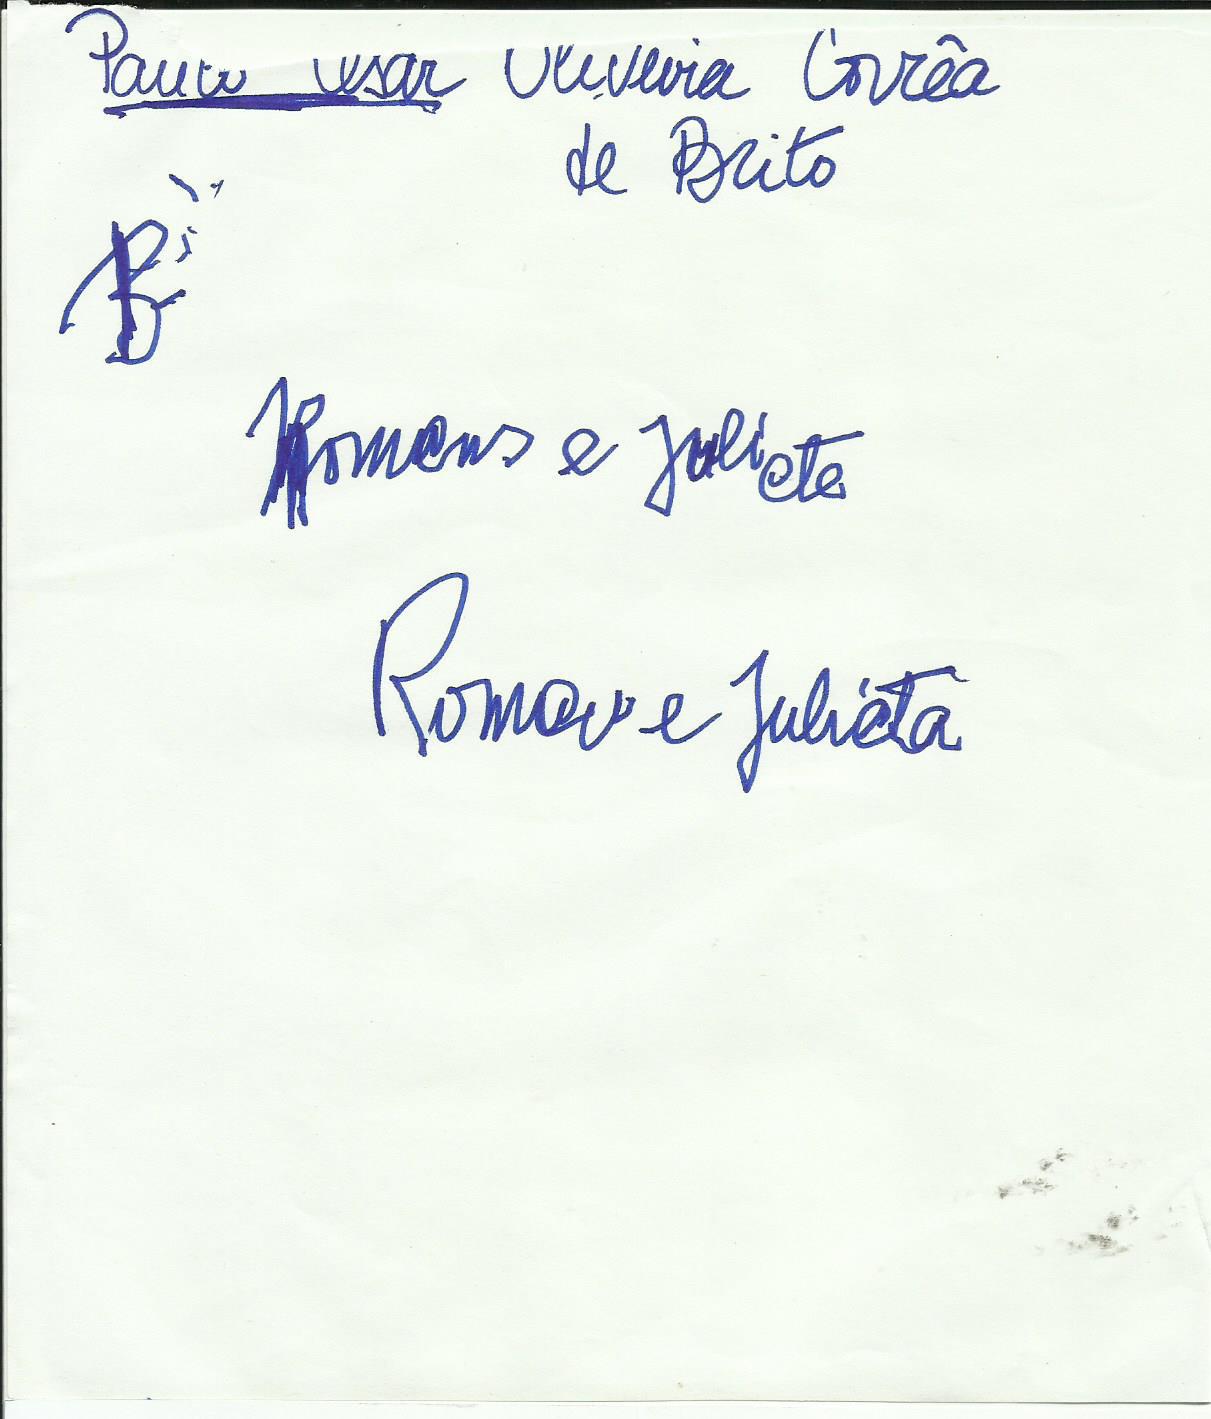 Paulo Cesar Oliveira Corrêa
de Brito
B
e Juliete
Romeu e Julieta